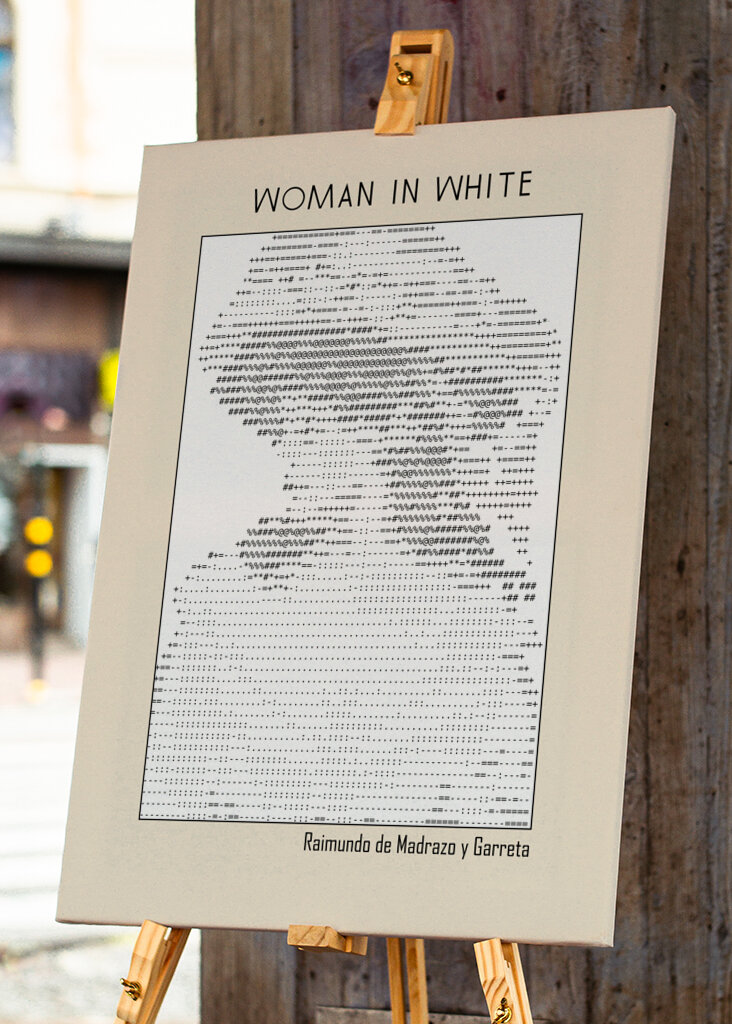 WOMAN IN WHITE
Raimundo de Madrazo y Garreta